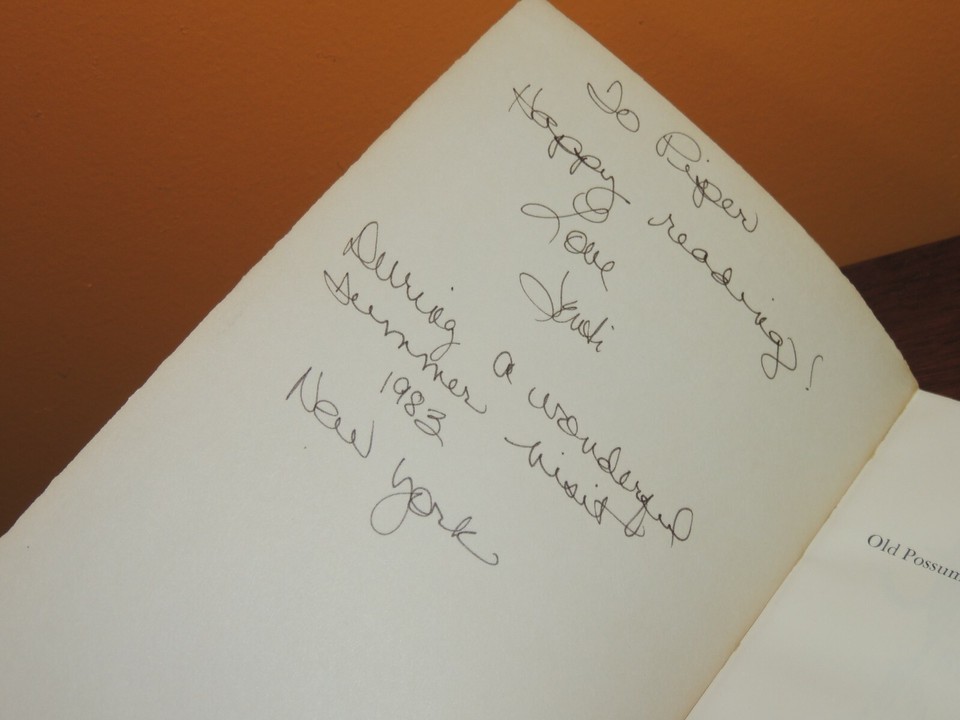 To Piper
Happy reading!
Love
During a wonderful
Summer visit
1983
New York
Old Possum